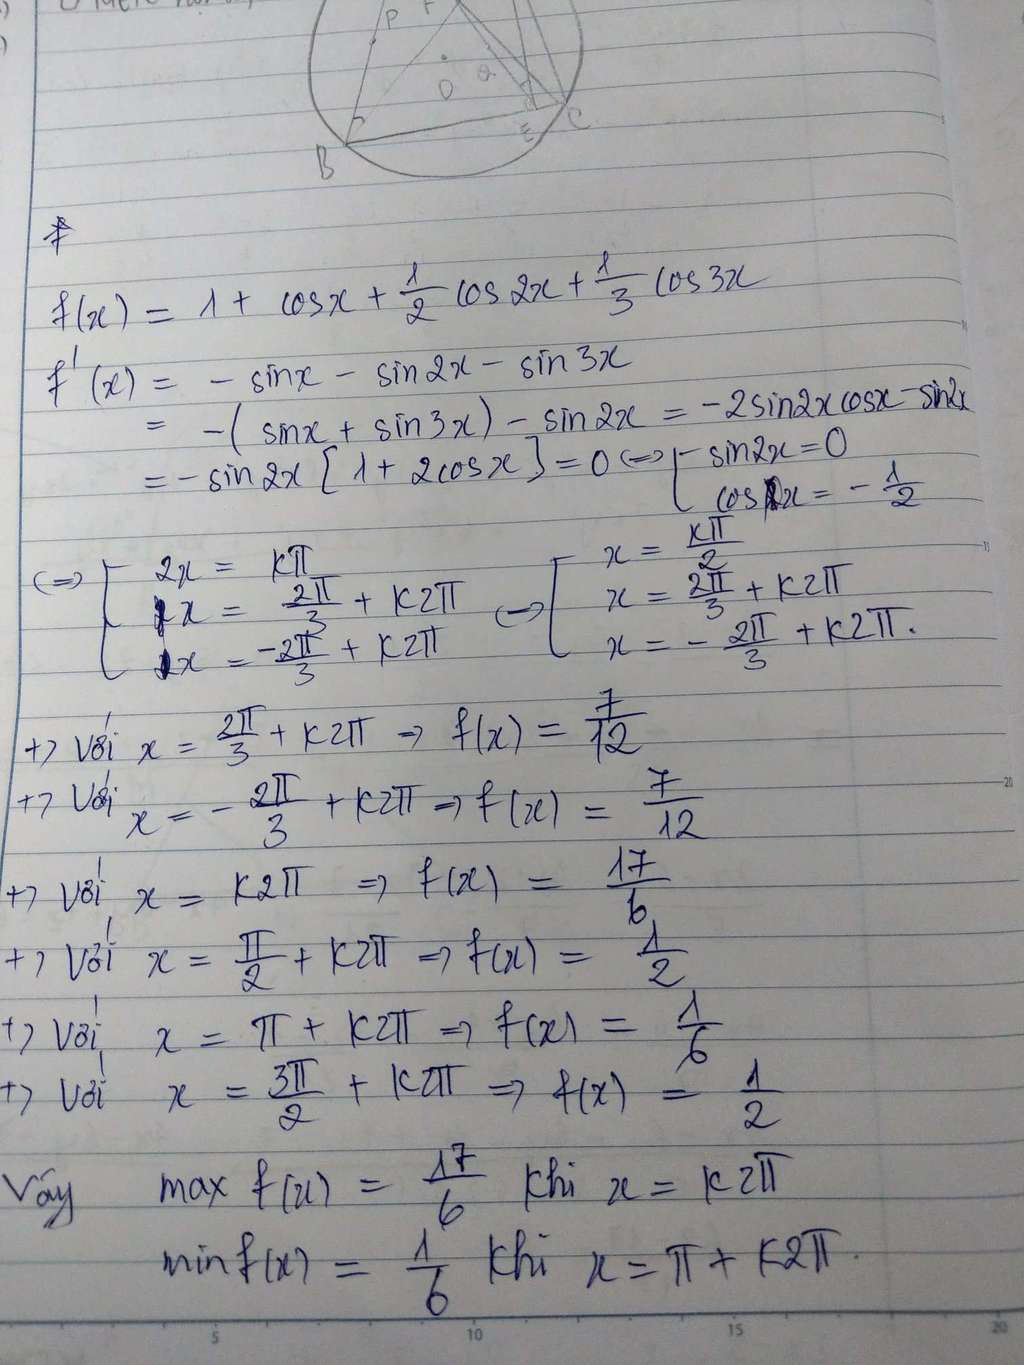 P F
O Q
B E C
f
f(x) = 1 + cosx + 1/2 cos2x + 1/3 cos3x
f'(x) = - sinx - sin2x - sin3x
= -( sinx + sin3x) - sin2x = -2sin2xcosx - sin2x
= - sin2x [ 1 + 2cosx ] = 0 <=> [ sin2x = 0
cosx = - 1/2
<=> [ 2x = kπ <=> [ x = kπ/2
x = 2π/3 + k2π x = 2π/3 + k2π
x = -2π/3 + k2π x = - 2π/3 + k2π.
+) Với x = 2π/3 + k2π => f(x) = 7/12
+) Với x = - 2π/3 + k2π => f(x) = 7/12
+) Với x = k2π => f(x) = 17/6
+) Với x = π/2 + k2π => f(x) = 1/2
+) Với x = π + k2π => f(x) = 1/6
+) Với x = 3π/2 + k2π => f(x) = 1/2
Vậy max f(x) = 17/6 khi x = k2π
min f(x) = 1/6 khi x = π + k2π.
5 10 15 20